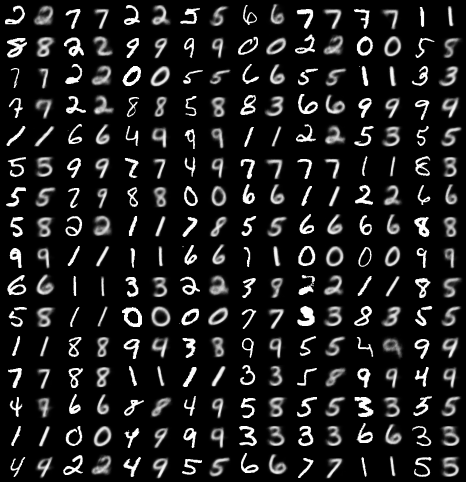 2 2 7 7 2 2 5 5 6 6 7 7 7 7 1 1
8 8 2 2 9 9 9 9 0 0 2 2 0 0 5 5
7 7 2 2 0 0 5 5 6 6 5 5 1 1 3 3
7 9 2 2 8 8 5 8 8 3 6 6 9 9 9 9
1 1 6 6 4 9 9 9 1 1 2 2 5 3 5 5
5 5 9 9 7 7 4 9 7 7 7 7 1 1 8 3
5 5 7 9 8 8 0 0 6 6 1 1 2 2 6 6
5 8 2 2 1 1 7 8 5 5 6 6 6 6 8 8
9 9 1 1 1 1 6 6 7 1 0 0 0 0 9 9
6 6 1 1 3 3 2 2 3 9 2 2 1 1 8 5
5 8 1 1 0 0 0 0 7 7 3 3 8 3 5 5
1 1 8 8 9 4 3 8 9 9 5 5 4 9 9 9
7 7 8 8 1 1 1 1 3 3 5 8 9 9 4 9
4 9 6 6 8 8 4 9 5 8 5 5 3 3 5 5
1 1 0 0 4 9 9 9 3 3 3 3 6 6 3 3
4 9 2 2 4 9 5 5 6 6 7 7 1 1 5 5